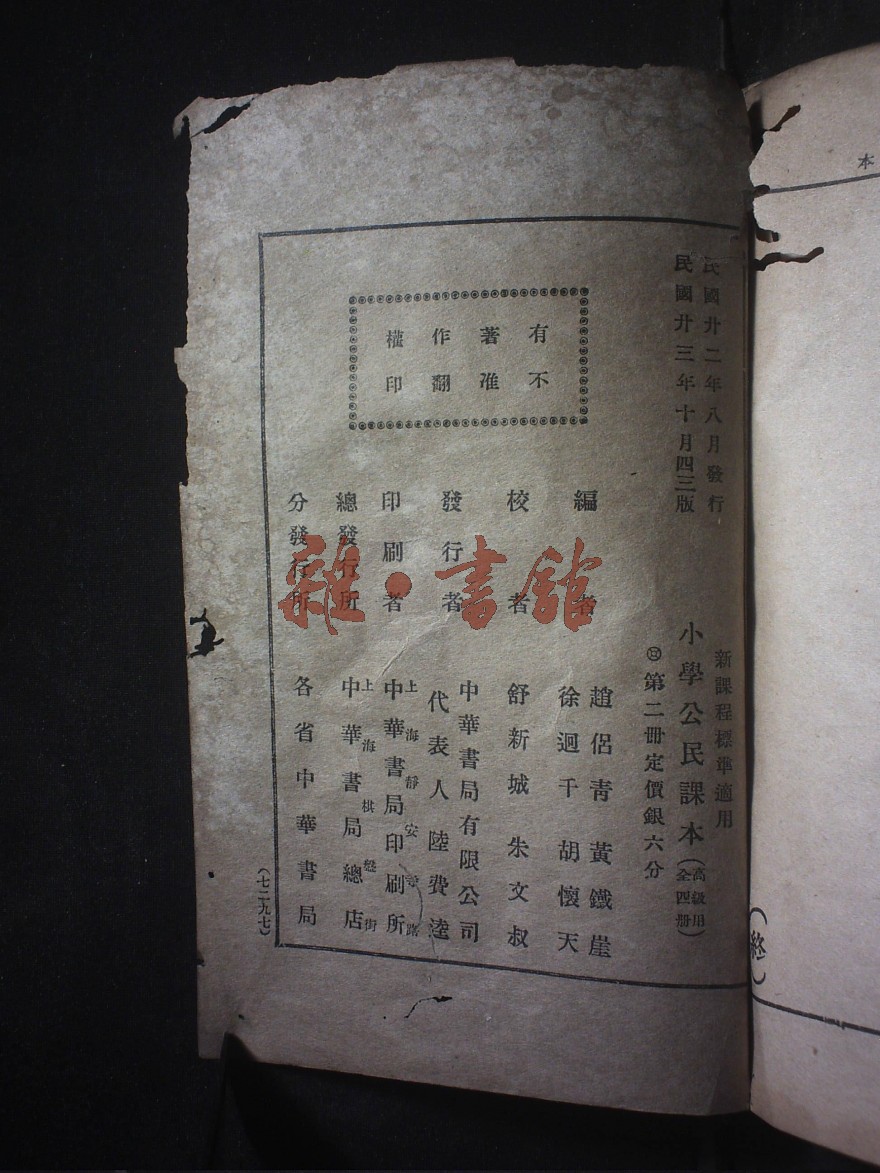 民國廿二年八月發行
民國廿三年十月四三版
新課程標準適用
小學公民課本（高級用全四册）
第二冊定價銀六分
有著作權
不准翻印
編者
趙侶青 黃鐵崖
徐迥千 胡懷天
校者
舒新城 朱文叔
發行者
中華書局有限公司
代表人 陸費逵
印刷者
上海靜安寺路
中華書局印刷所
總發行所
上海棋盤街
中華書局總店
分發行所
各省中華書局
（七二九七）
雜·書館
本
（終）